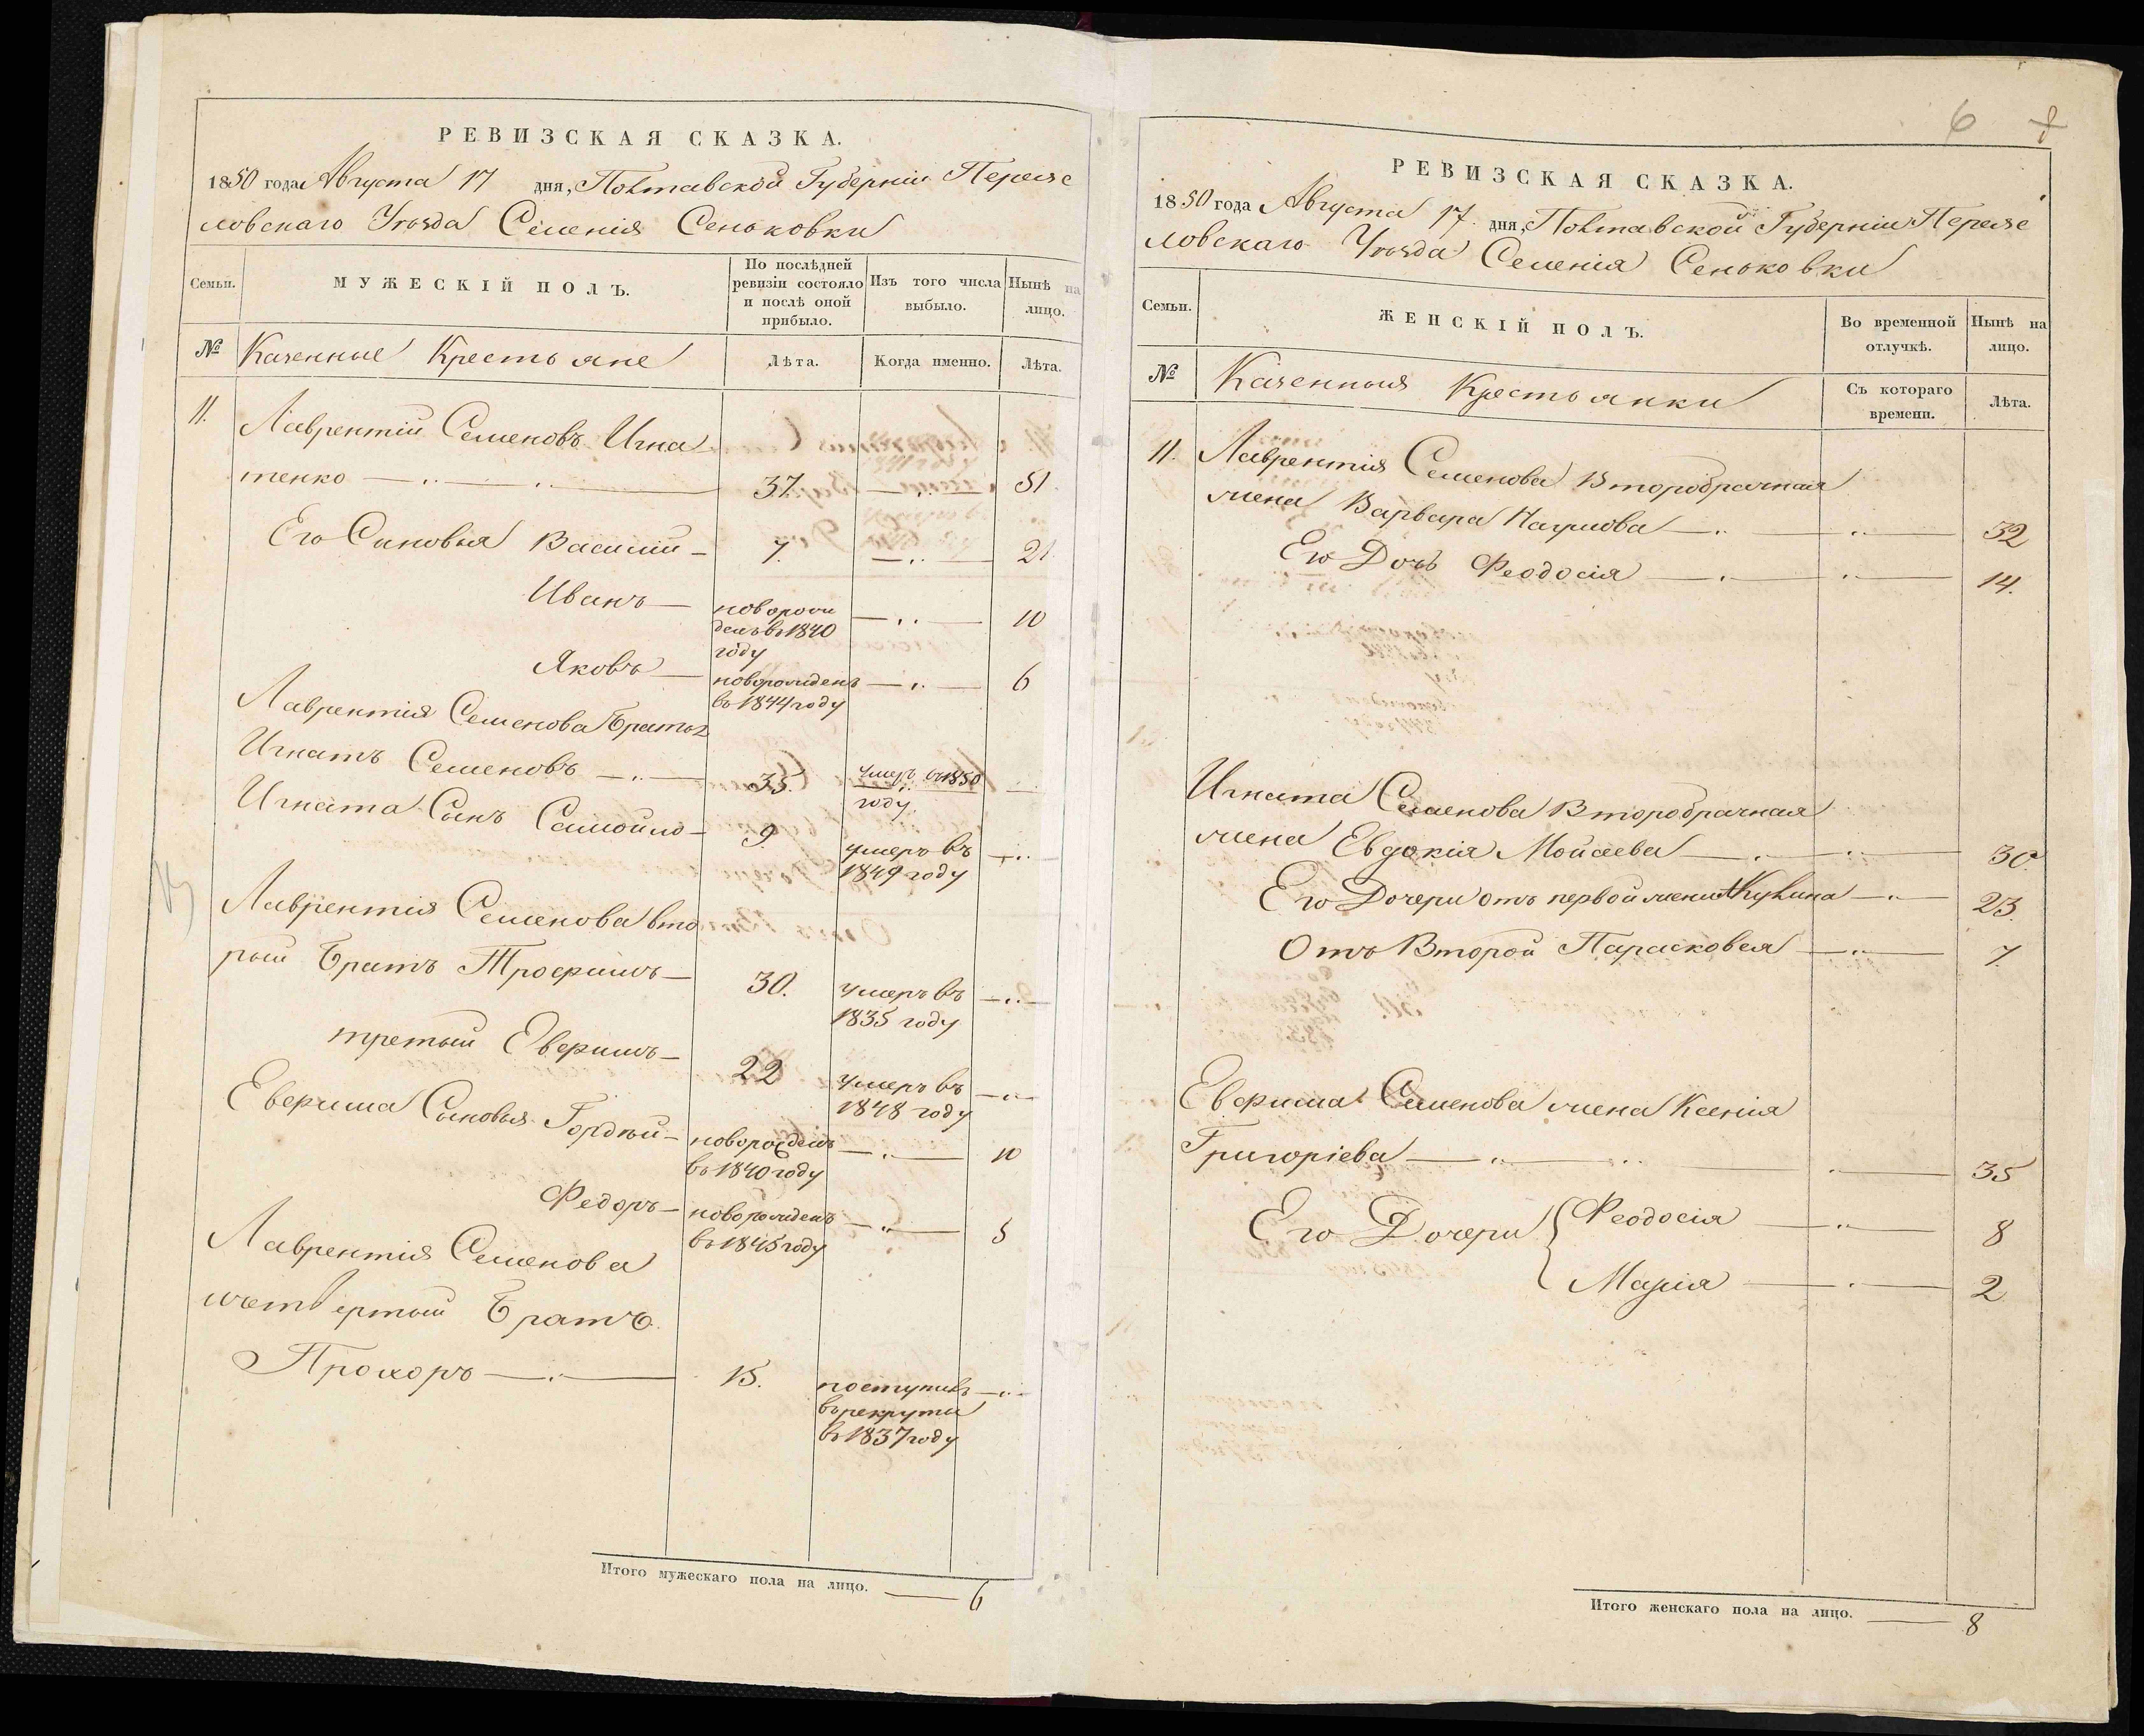 РЕВИЗСКАЯ СКАЗКА.
1850 года Августа 17 дня, Полтавской Губерніи Переяс
ловскаго Уѣзда Селенія Сеньковки
Семьи.
МУЖЕСКІЙ ПОЛЪ.
По послѣдней
ревизіи состояло
и послѣ оной
прибыло.
Изъ того числа
выбыло.
Нынѣ на
лицо.
№ Казенные Крестьяне
Лѣта.
Когда именно.
Лѣта.
11. Лаврентій Семеновъ Игна
тенко 37. 51
Его Сыновья Василій 7. 21
Иванъ новорож
денъ въ 1840
году 10
Яковъ новорожденъ
въ 1844 году 6
Лаврентія Семенова братъ
Игнатъ Семеновъ 35. умеръ въ 1850
году
Игната Сынъ Самойло 9 умеръ въ
1849 году
Лаврентія Семенова вто
рый Братъ Трофимъ 30. умеръ въ
1835 году
третый Евфимъ 22 умеръ въ
1848 году
Евфима Сыновья Гордѣй новорожденъ
въ 1840 году 10
Федоръ новорожденъ
въ 1845 году 5
Лаврентія Семенова
четвертый Братъ
Прохоръ 15. поступилъ
въ рекруты
въ 1837 году
Итого мужескаго пола на лицо. 6
6
РЕВИЗСКАЯ СКАЗКА.
1850 года Августа 17. дня, Полтавской Губерніи Переяс
ловскаго Уѣзда Селенія Сеньковки
Семьи.
ЖЕНСКІЙ ПОЛЪ.
Во временной
отлучкѣ.
Нынѣ на
лицо.
№ Казенныя Крестьянки
Съ котораго
времени.
Лѣта.
11. Лаврентія Семенова Второбрачная
жена Варвара Наумова 32
Его Дочь Феодосія 14.
Игната Семенова Второбрачная
жена Евдокія Мойсеева 30.
Его Дочери отъ первой жены Акулина 23.
Отъ Второй Парасковея 7.
Евфима Семенова жена Ксенія
Григоріева 35
Его Дочери Феодосія 8
Марія 2
Итого женскаго пола на лицо. 8